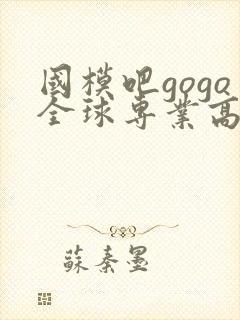 國模吧gogo
全球專業高
蘇秦墨